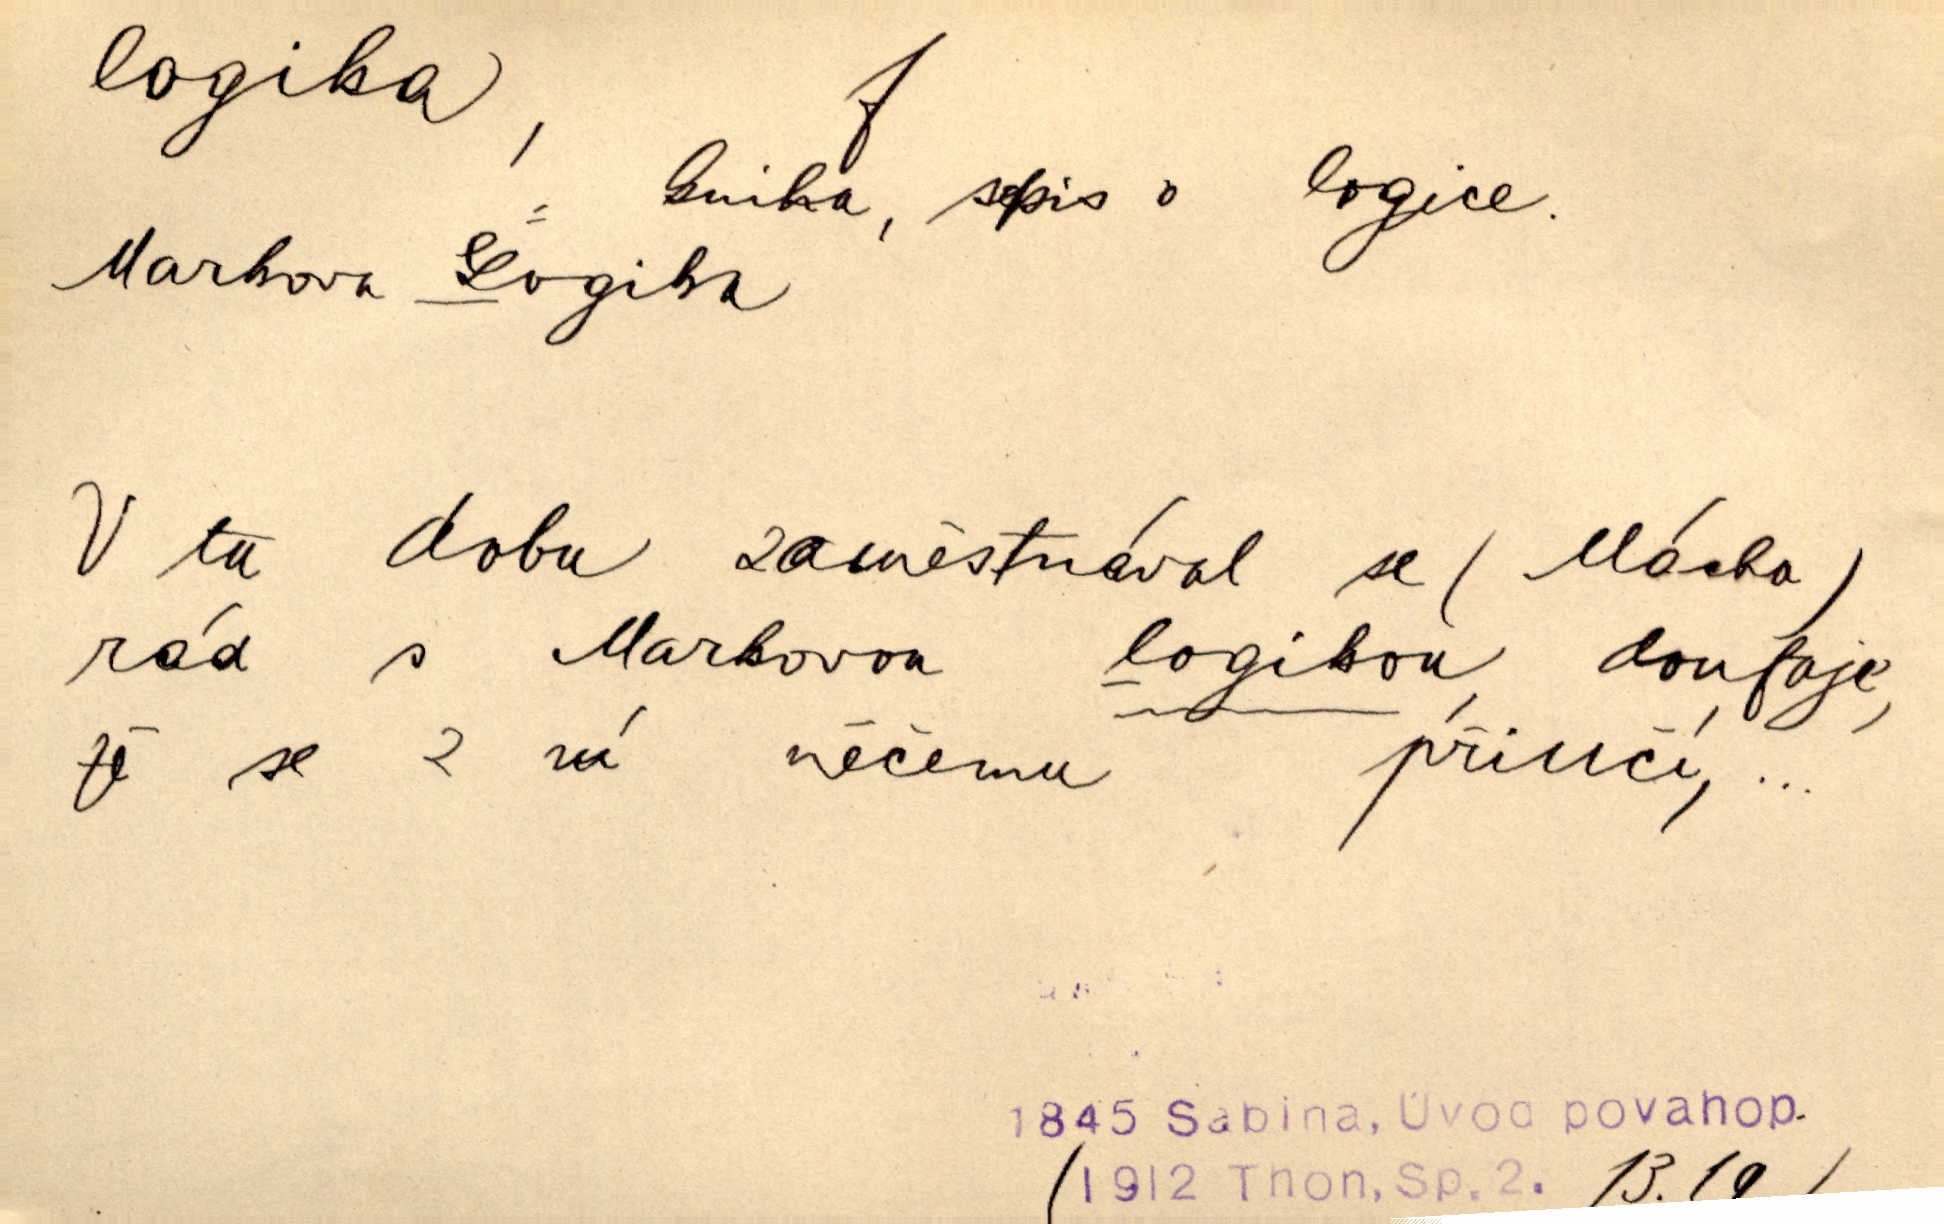 logika, f
: kniha, spis o logice.
Markova Logika
V tu dobu zaměstnával se (Mácha)
rád s Markovou logikou, doufaje,
že se z ní něčemu přiučí, ...
1845 Sabina, Úvod povahop.
(1912 Thon, Sp. 2. 13. 19)